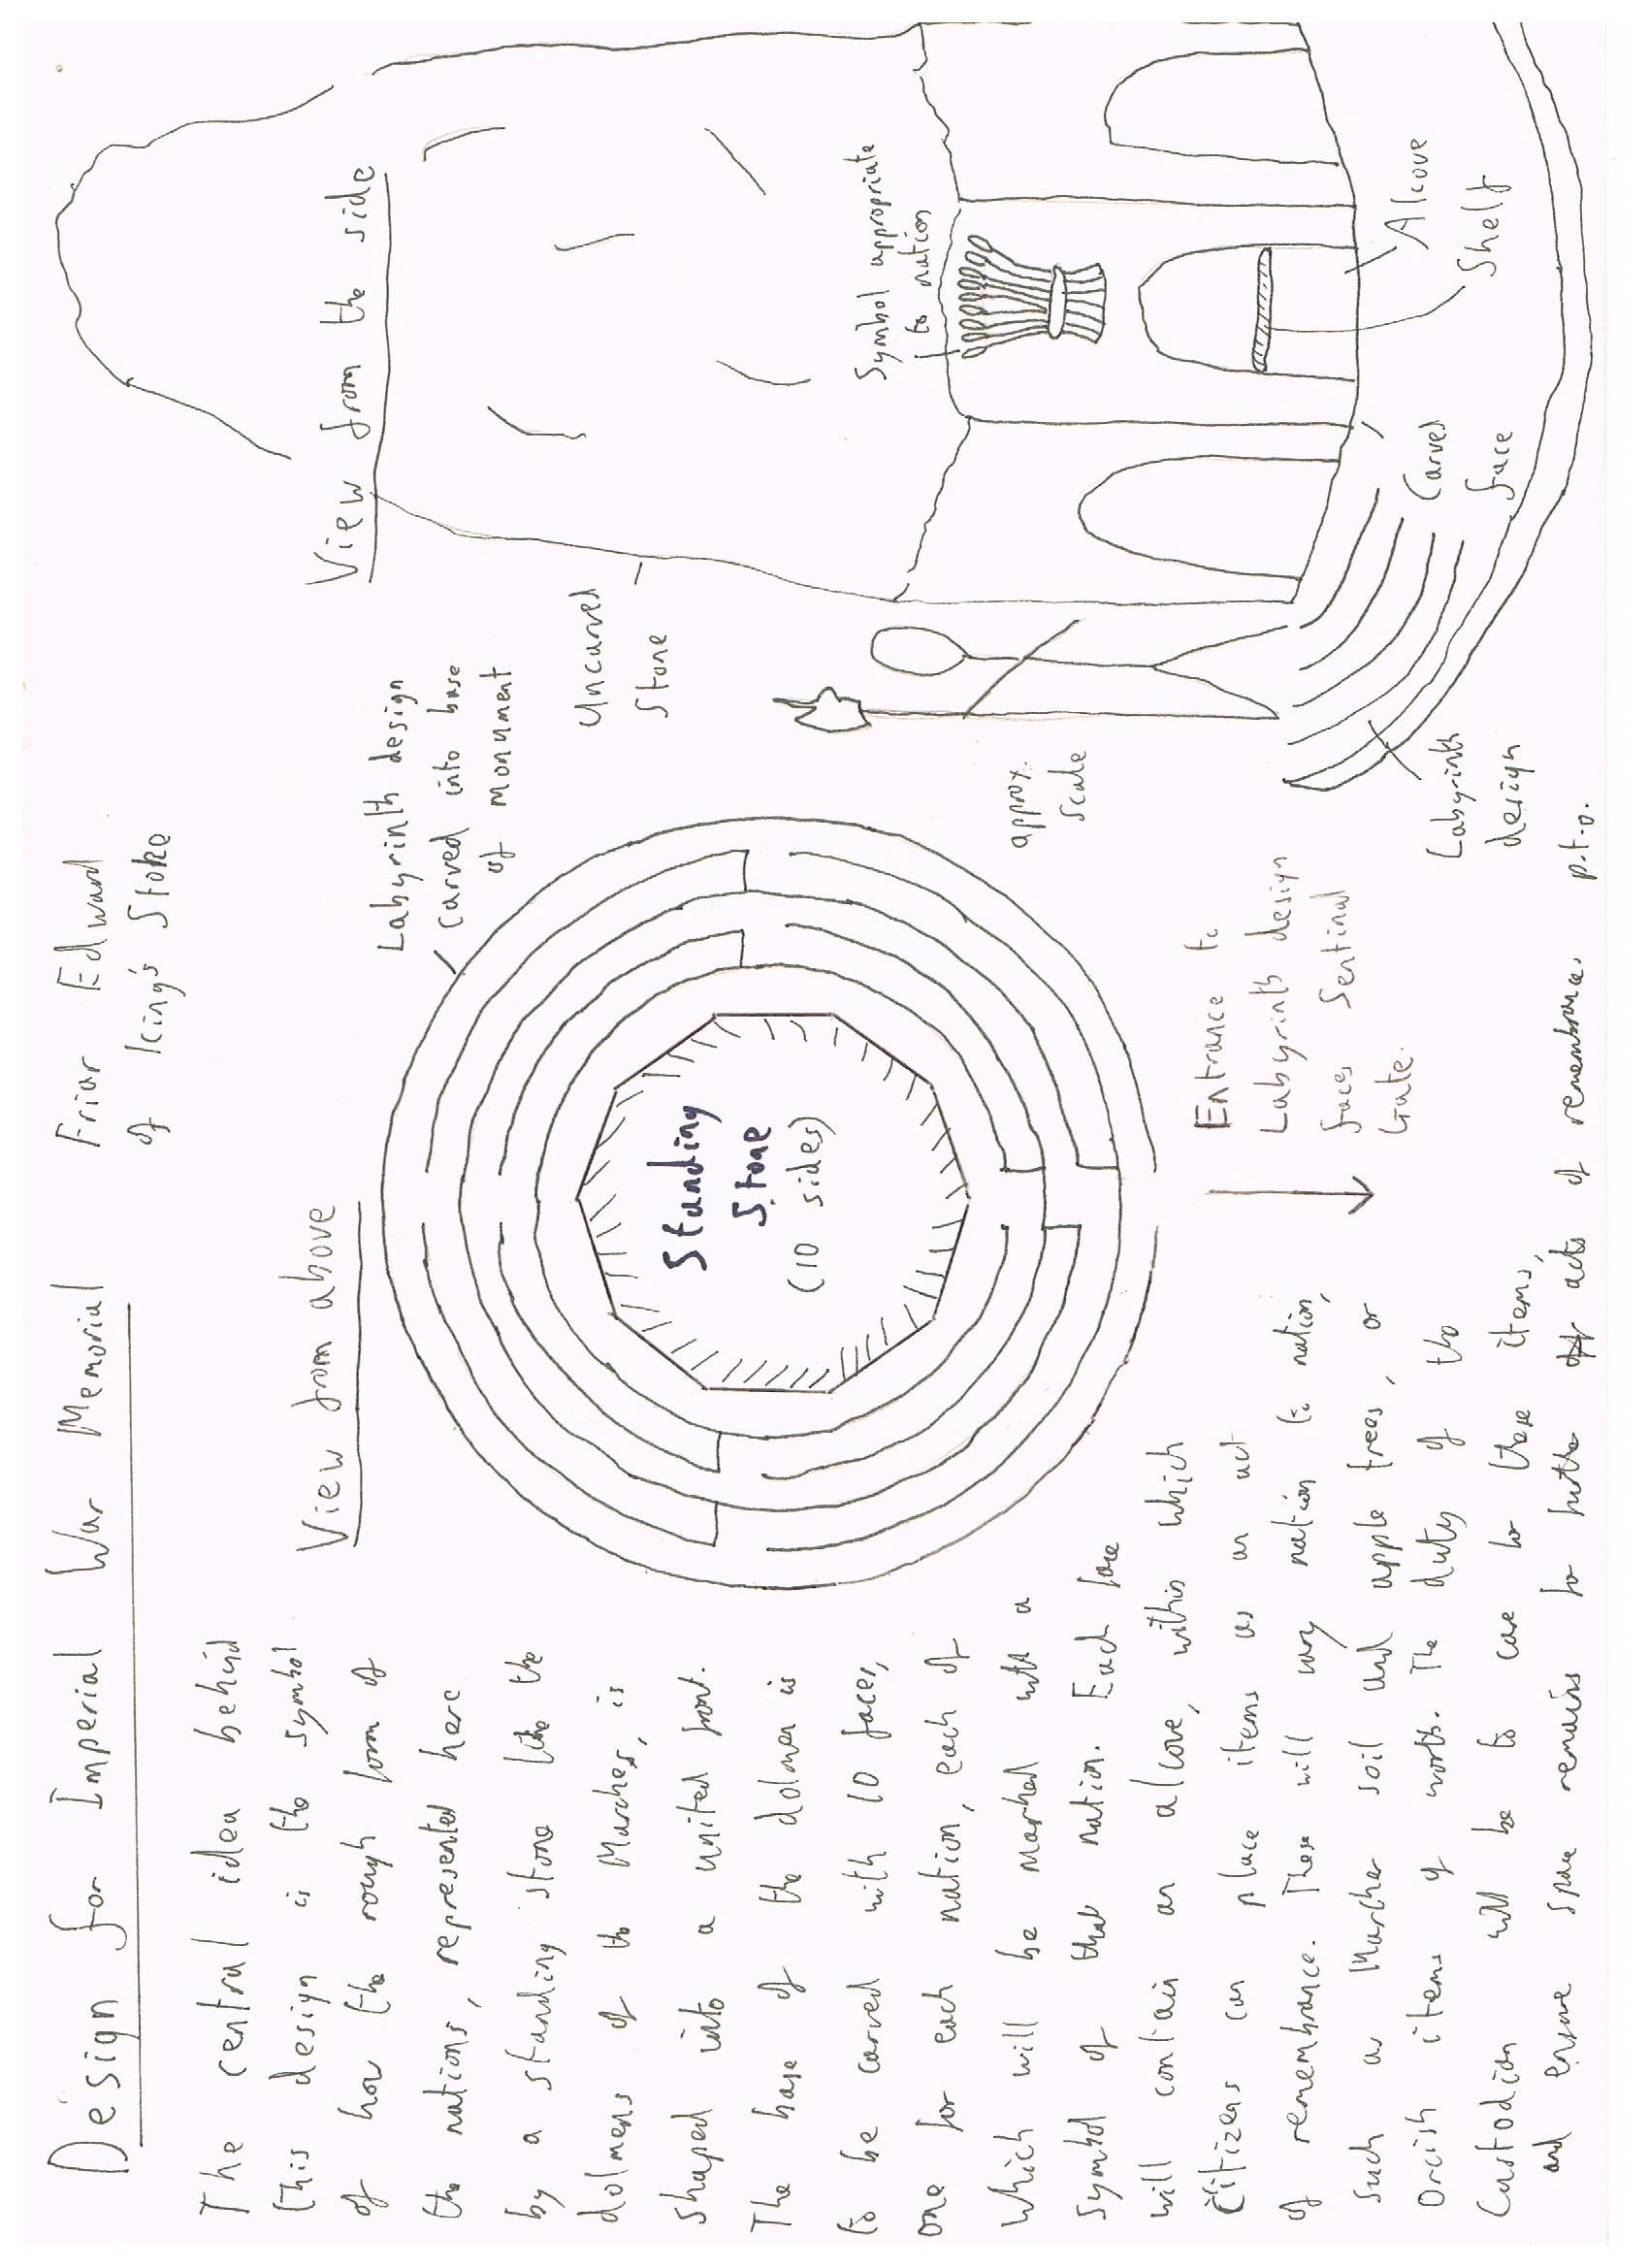 Design for Imperial War Memorial
Friar Edward
of King's Stoke
The central idea behind
this design is the symbol
of how the rough form of
the nations, represented here
by a standing stone like the
dolmens of the Marches, is
shaped into a united front.
The base of the dolmen is
to be carved with 10 faces,
one for each nation, each of
which will be marked with a
symbol of that nation. Each face
will contain an alcove, within which
Citizens can place items as an act
of remembrance. These will vary nation to nation,
such as Marcher soil and apple trees, or
Orcish items of worth. The duty of the
Custodian will be to care for these items,
and ensure space remains for further acts of remembrance.
p.t.o.
View from above
Labyrinth design
carved into base
of monument
Standing
Stone
(10 sides)
Entrance to
Labyrinth design
faces Sentinal
Gate.
View from the side
Uncarved
Stone
Symbol appropriate
to nation
approx.
scale
Alcove
Shelf
Carved
face
Labyrinth
design